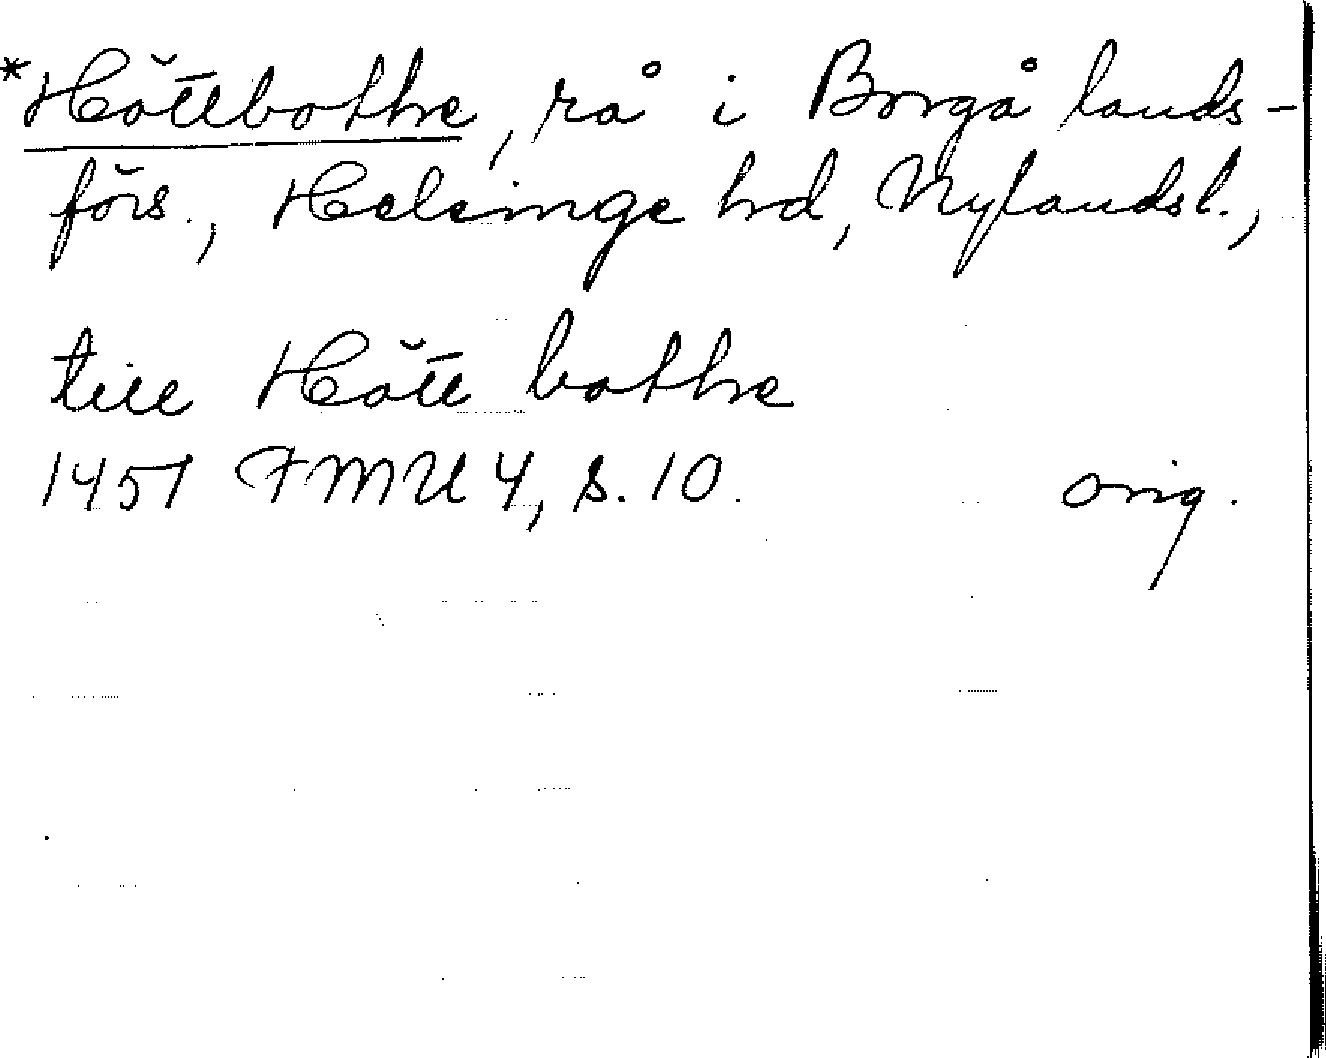 *Hŏttbothe, rå i Borgå lands-
förs., Helsinge hd, Nylandsl.,
till Hŏtt bothe
1451 FMU 4, s. 10. orig.